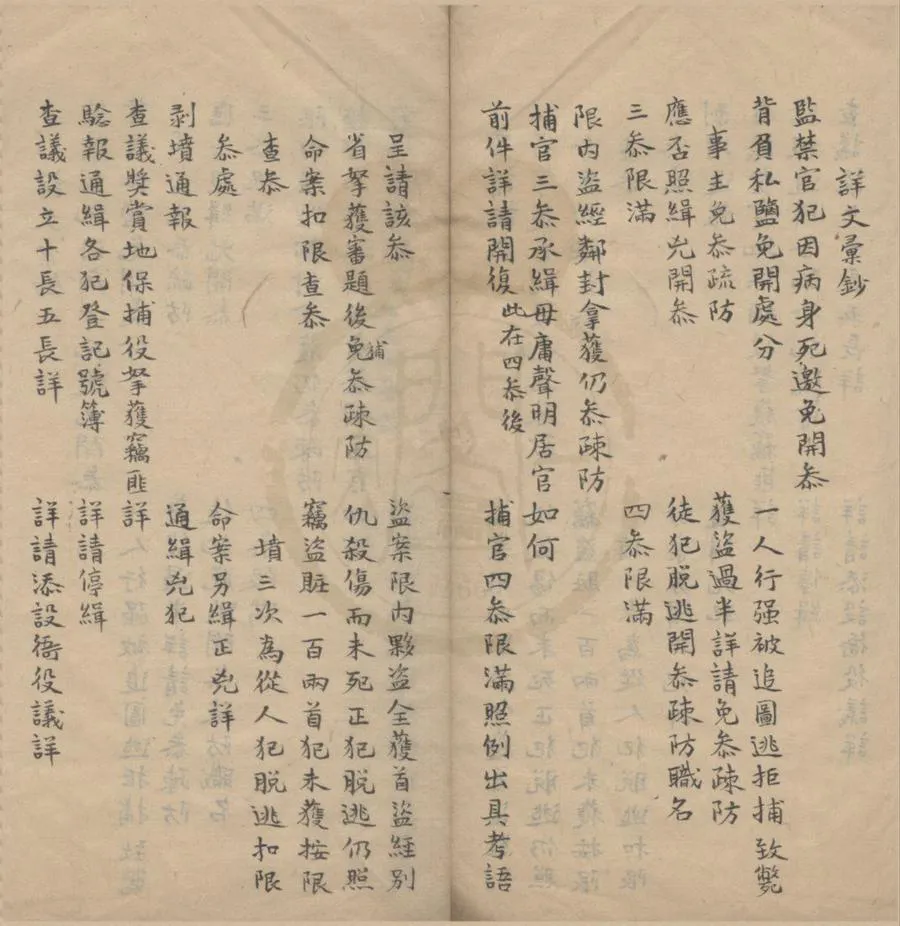 詳文彙鈔
監禁官犯因病身死邀免開叅
背負私鹽免開處分　一人行强被追圖逃拒捕致斃
事主免叅疏防　獲盜過半詳請免叅疎防
應否照緝兇開叅　徒犯脫逃開叅疎防職名
三叅限滿　四叅限滿
限内盜經鄰封拿獲仍叅疎防
捕官三叅承緝毋庸聲明居官如何
前件詳請開復　此在四叅後　捕官四叅限滿照例出具考語
呈請該叅　盜案限内夥盜全獲首盜經別
省拏獲審題後免捕叅疎防　仇殺傷而未死正犯脫逃仍照
命案扣限查叅　竊盜賍一百兩首犯未獲按限
查叅　墳三次為從人犯脫逃扣限
叅處　命案另緝正兇詳
剥墳通報　通緝兇犯
查議奬賞地保捕役拏獲竊匪詳
騐報通緝各犯登記號簿　詳請停緝
查議設立十長五長詳　詳請添設衙役議詳